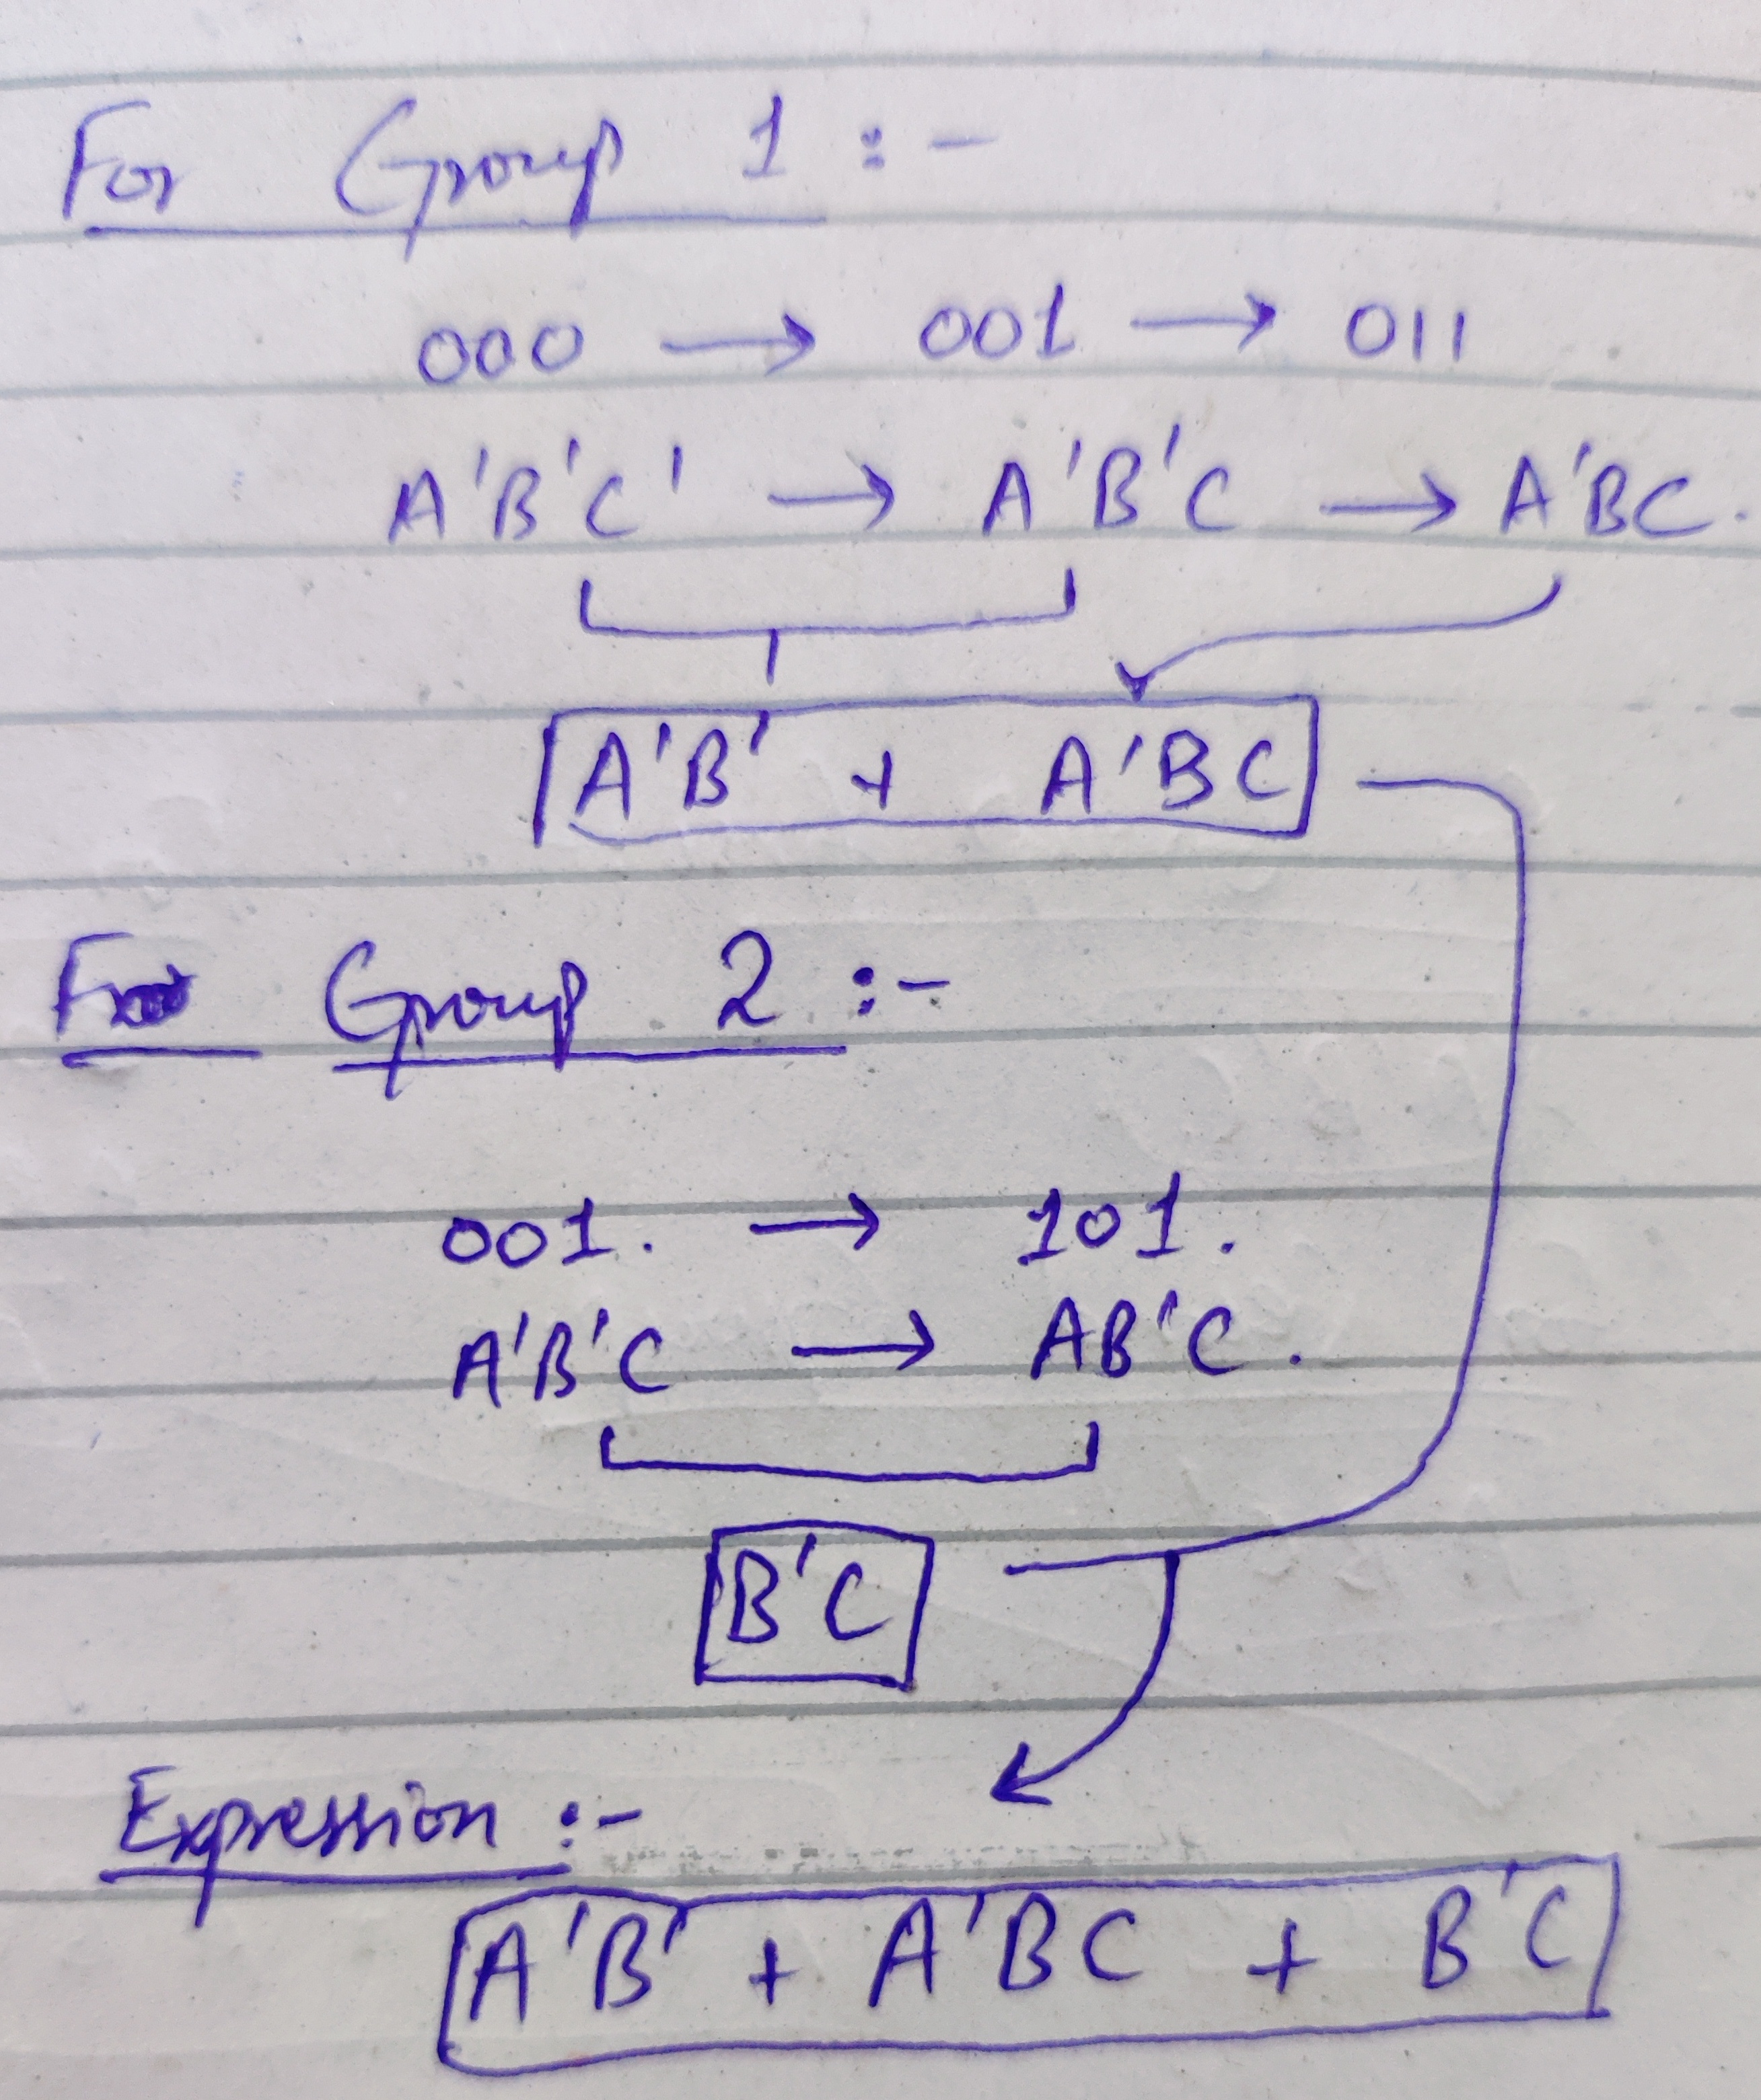 For Group 1 :-
000 → 001 → 011
A'B'C' → A'B'C → A'BC.
A'B' + A'BC
For Group 2 :-
001. → 101.
A'B'C → AB'C.
B'C
Expression :-
A'B' + A'BC + B'C